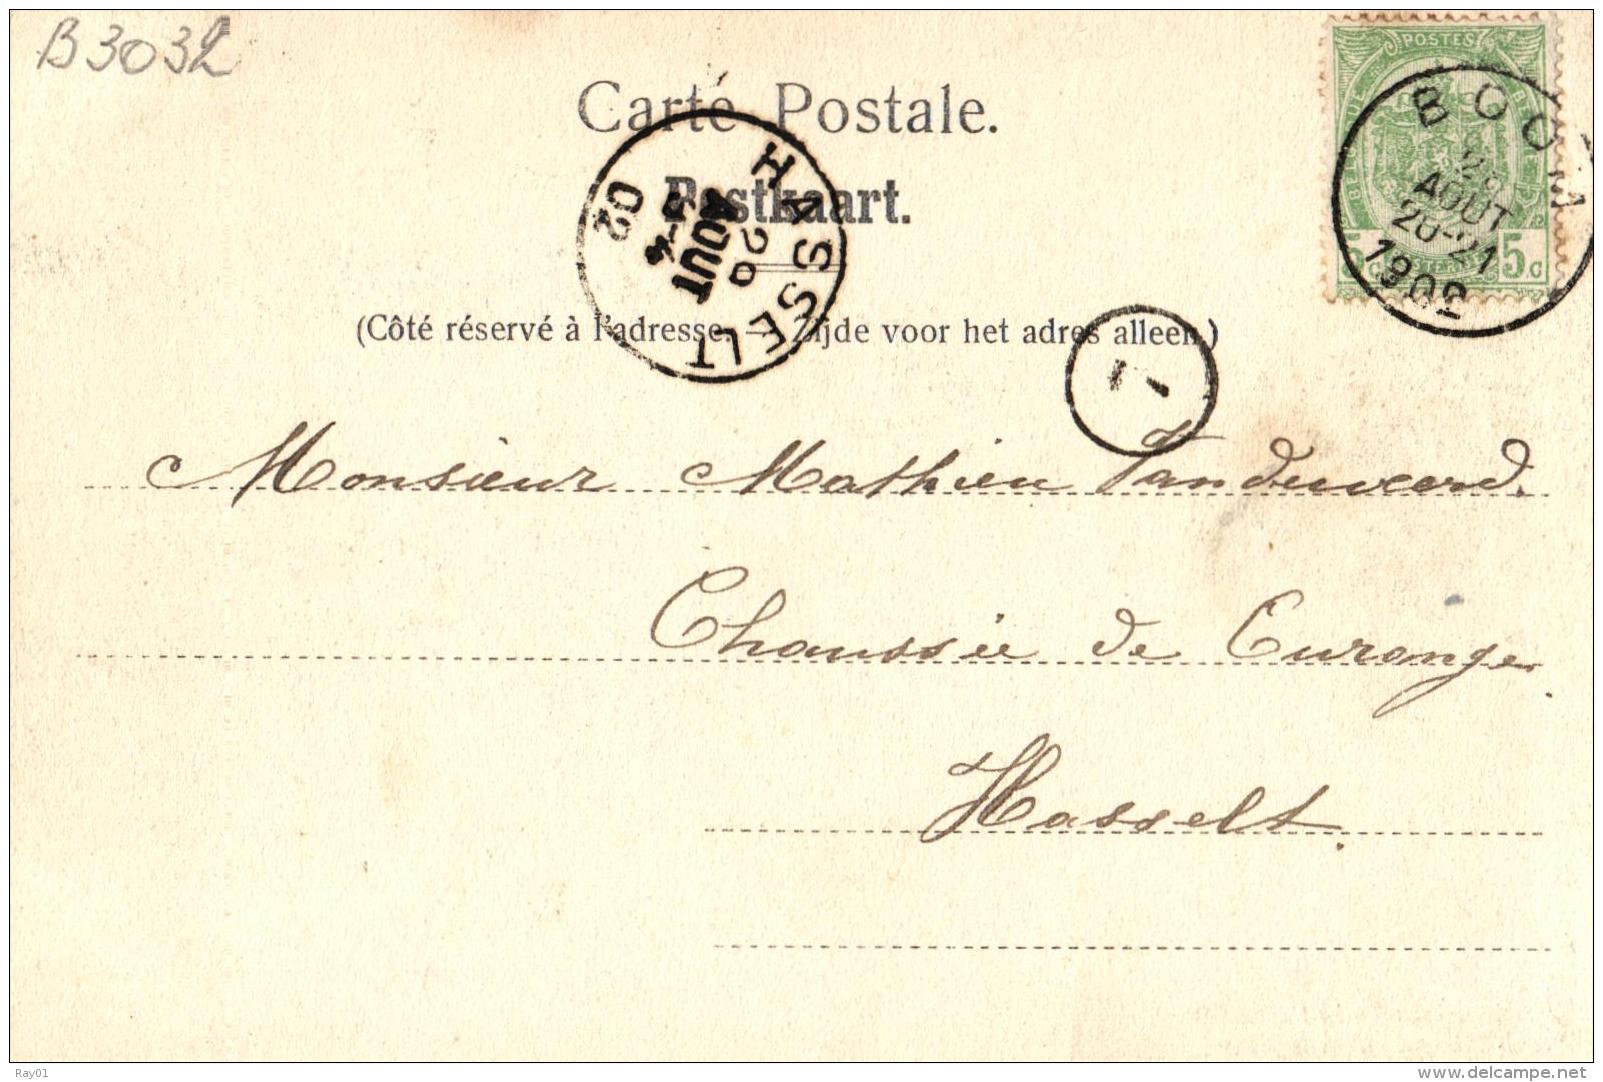 B3032
POSTES
Carte Postale.
BOOM
AOUT
20-21
1902
5 C
Postkaart.
HASSELT
AOUT
02
(Côté réservé à l'adresse. — Zijde voor het adres alleen.)
1
Monsieur Mathieu Vanduweerd.
Chaussée de Curange.
Hasselt.
Ray01
www.delcampe.net